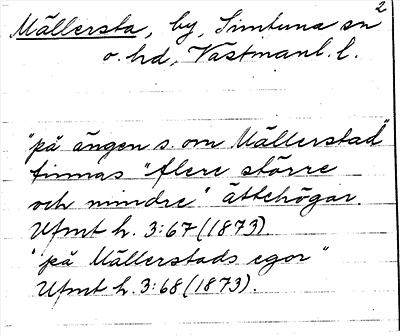 2
Mällersta, by, Simtuna sn
o. hd, Västmanl. l.
"på ängen s. om Mällerstad"
finnas "flere större
och mindre" ättehögar.
Ufmt h. 3:67 (1873).
"på Mällerstads egor"
Ufmt h. 3:68 (1873).